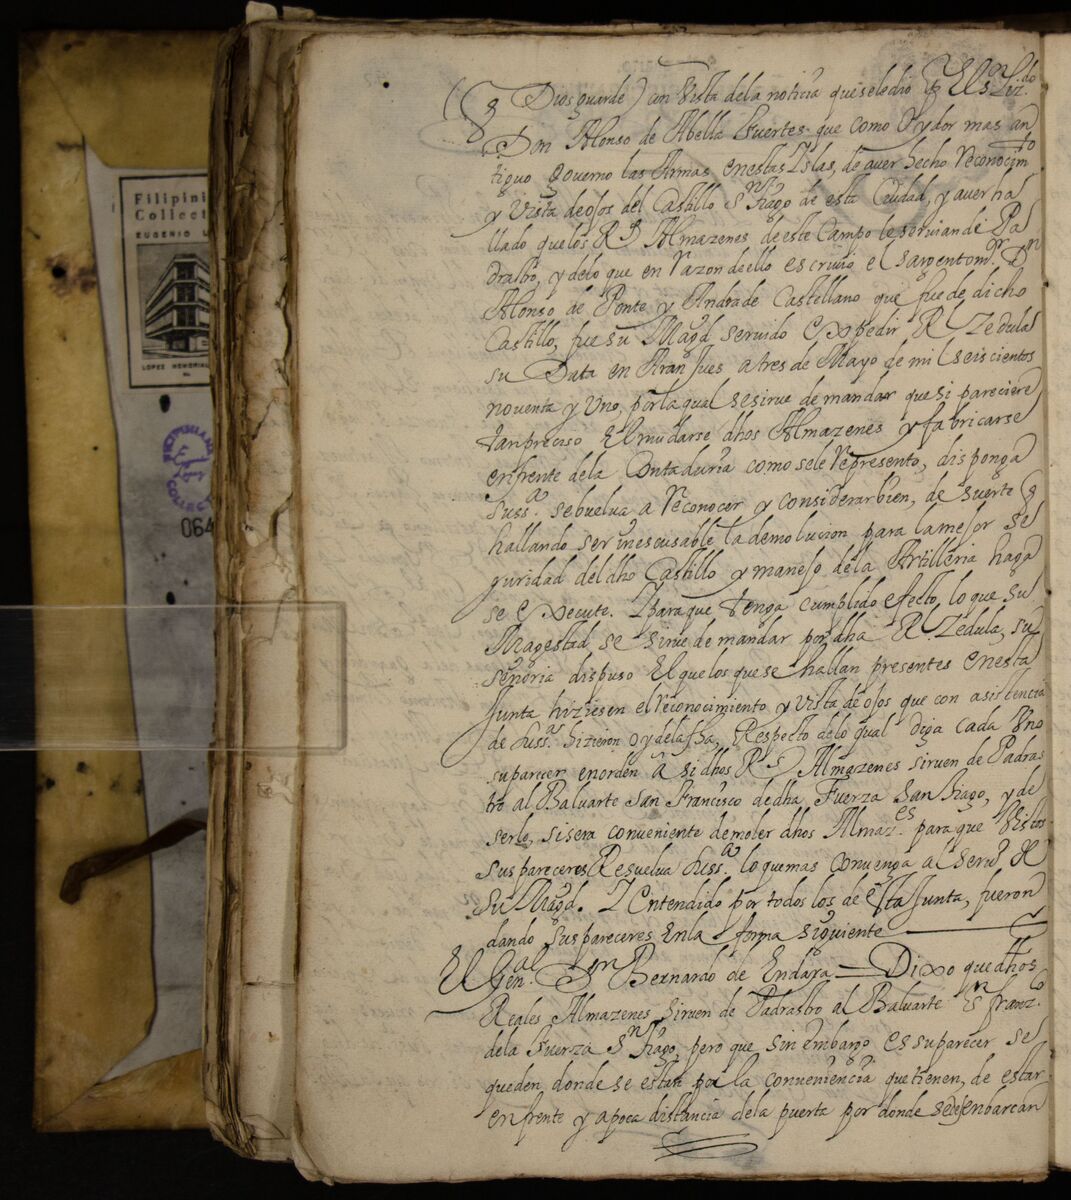 Filipini
Collect
EUGENIO L
LOPEZ MEMORIAL
064
(q Dios guarde) en Vista dela noticia que seledio p El s.r Liz.do
Don Alonso de Abella fuertes que como Oydor mas an
tiguo governo las Armas enestas Yslas, de aver hecho Reconocim.to
y Vista de ojos del Castillo S.n tiago de esta Ciudad, y aver ha
llado quelos R.s Almazenes deeste Campo le servian de Pa
drasto, y delo que en razon deello escrivio el sargentom.r D.n
Alonso de Ponte y Andrade Castellano que fue de dicho
Castillo, fue su Mag.d servido Expedir R.l Zedula
su Data en Aranjues a tres de Mayo de mil seiscientos
noventa y Uno, porla qual sesirve de mandar que si pareciere
tan preciso El mudarse dhos Almazenes y fabricarse
enfrente dela Contaduria como sele Represento, disponga
suss.a sebuelva a Reconocer y considerar bien, de suerte q
hallando ser inescusable la demolucion para la mejor se
guridad del dho Castillo y manejo dela Artilleria haga
se Execute. Y para que tenga cumplido efecto, lo que su
Magestad se sirve de mandar por dha R.l Zedula, su
señoria dispuso El que los que se hallan presentes enesta
Junta hiziesen el reconocimiento y Vista de ojos que con asistencia
de suss.a hizieron oy dela fha, Respecto delo qual diga cada Uno
su parecer en orden â si dhos R.s Almazenes sirven de Padras
tro al Baluarte San Francisco dedha Fuerza San tiago, y de
serlo, si sera conveniente demoler dhos Almaz.es para que Vistos
sus pareceres Resuelva suss.a lo que mas convenga al serv.o de
su Mag.d. Y Entendido por todos los de esta Junta, fueron
dando sus pareceres Enla forma siguiente
El Gen.al D.on Bernardo de Endara — Dixo que dhos
Reales Almazenes sirven de Padrastro al Baluarte S.n Franz.co
dela fuerza S.n tiago, pero que sin embargo es su parecer se
queden donde se estan por la conveniencia que tienen, de estar
enfrente y a poca distancia dela puerta por donde se desenbarcan